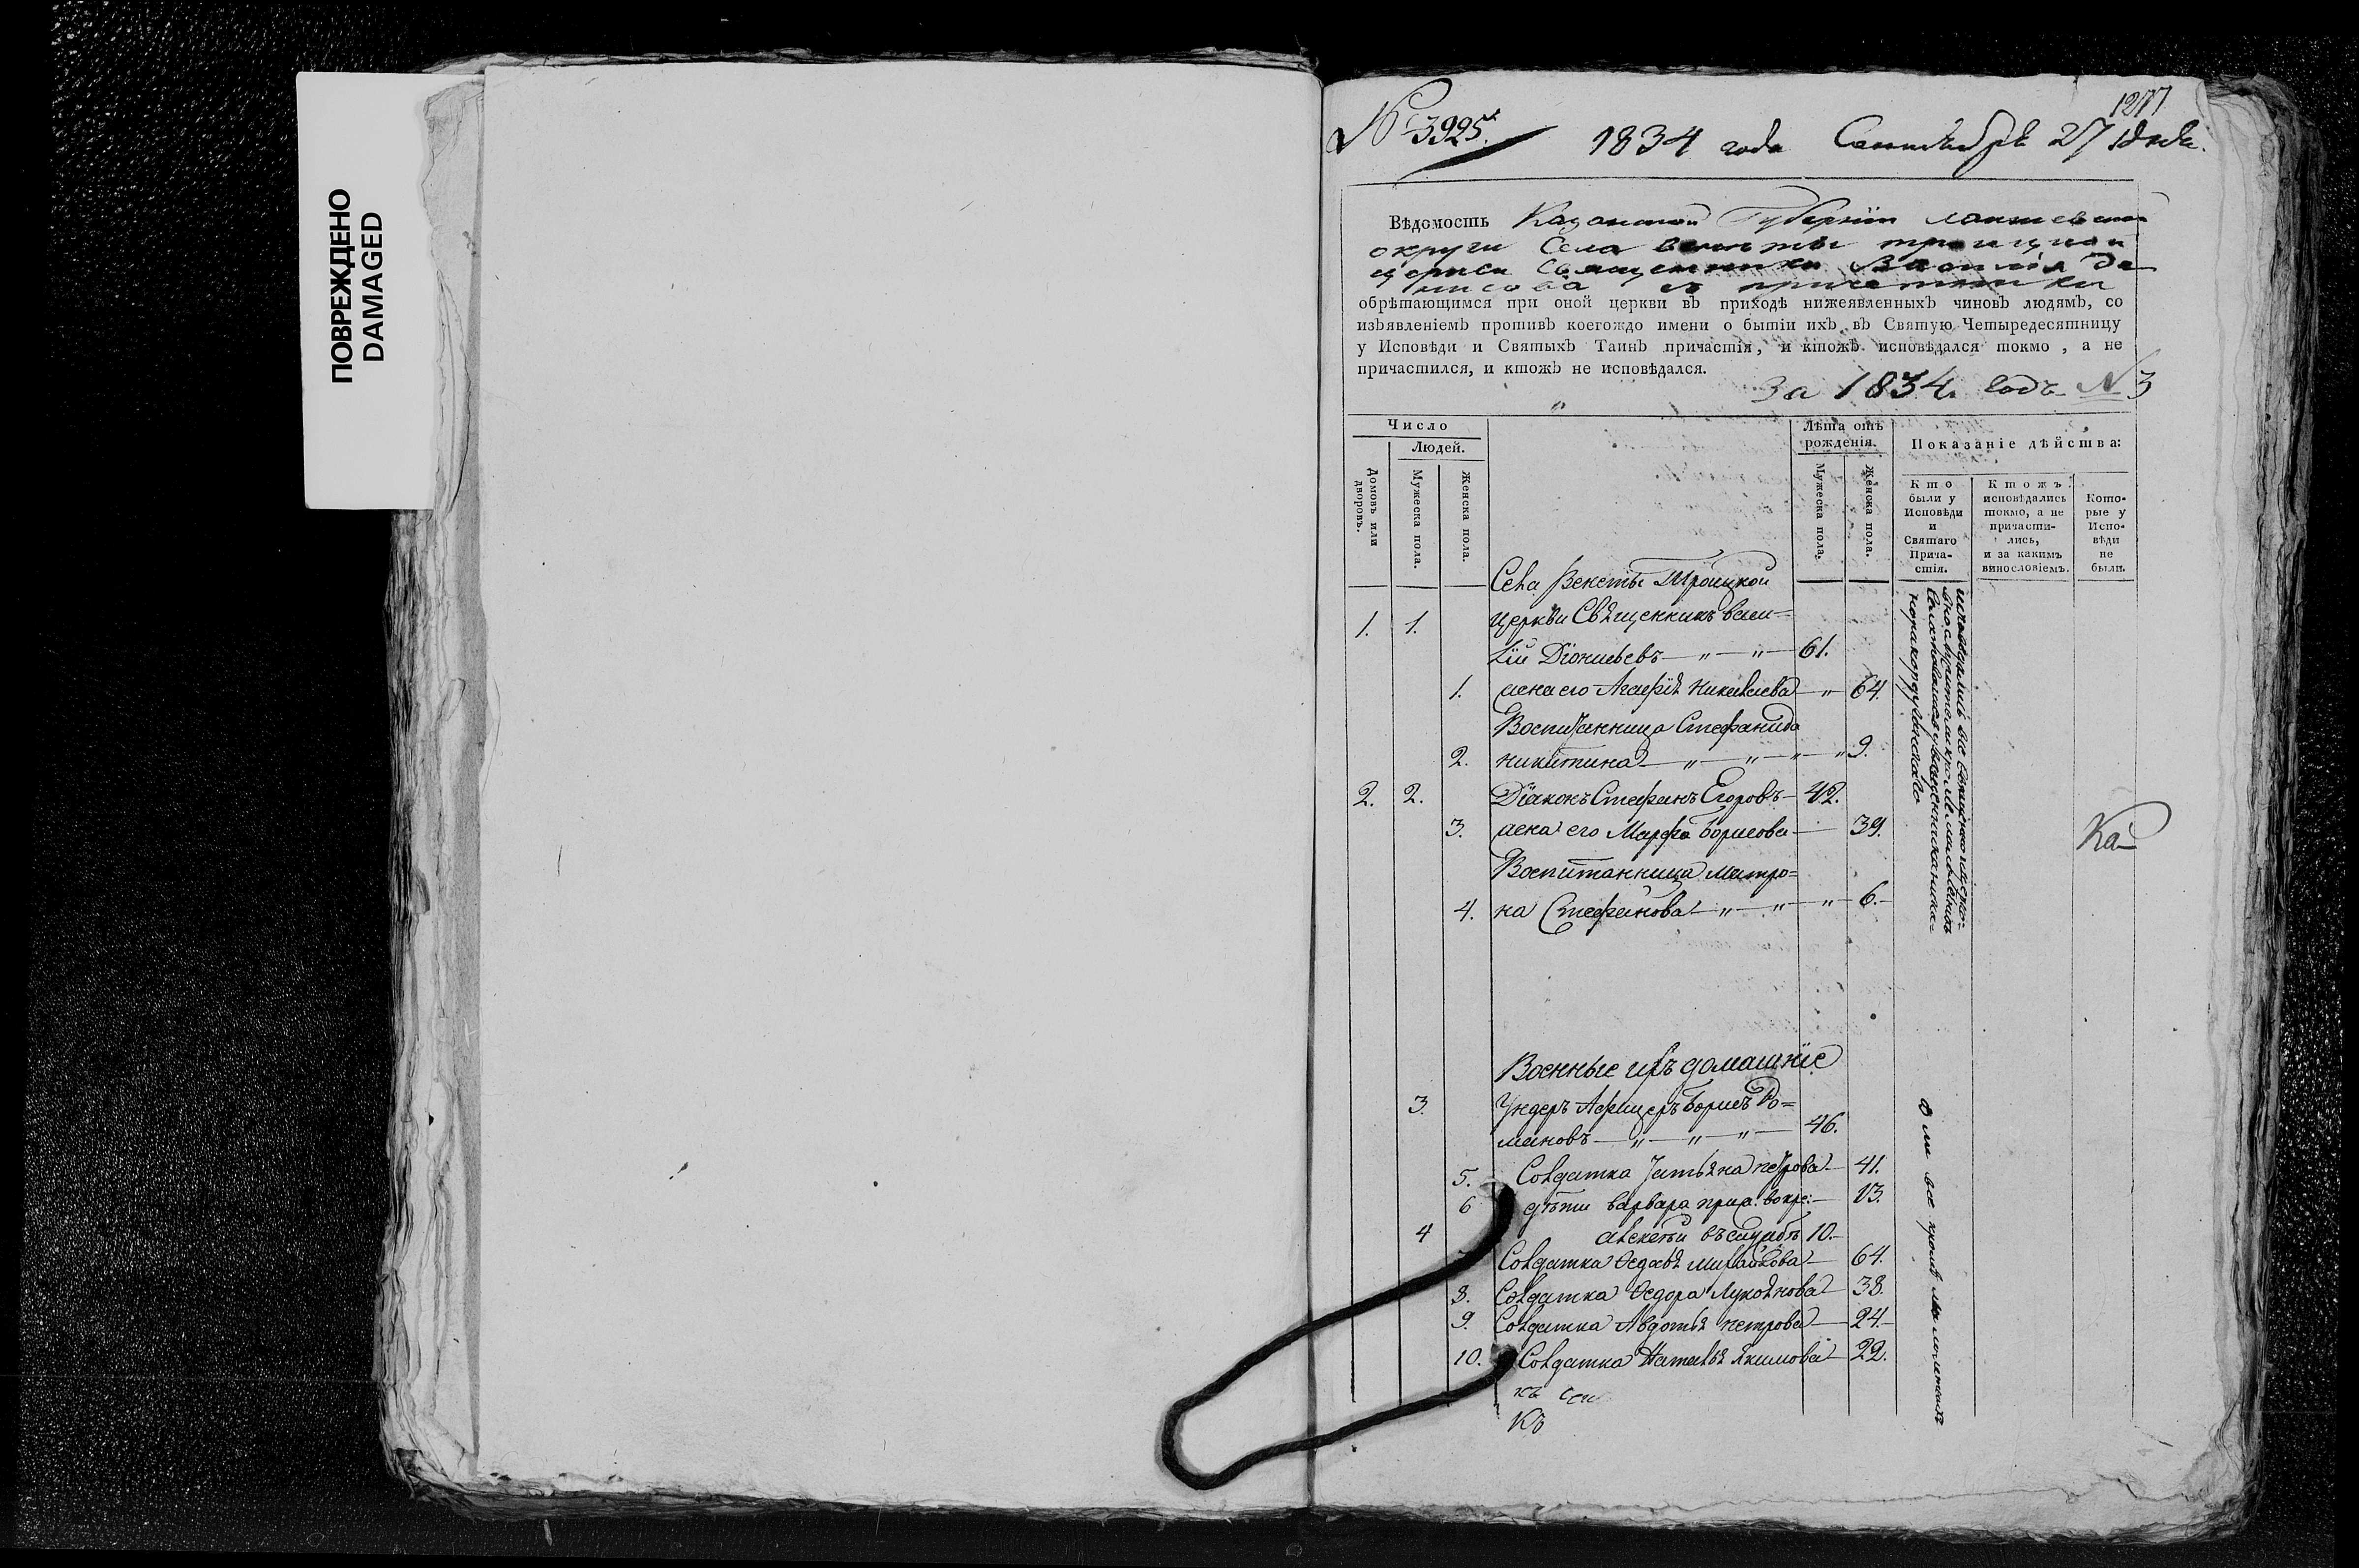 ПОВРЕЖДЕНО
DAMAGED
1277
№ 3925.
1834 года Сентября 27 дня.
Вѣдомость Казанской Губернїи лаишевской
округи Села венеты троицкой
церкви Священника Василїя Де
нисова съ причетники
обрѣтающимся при оной церкви въ приходѣ нижеявленныхъ чиновъ людямъ, со
изъявленїемъ противъ коегождо имени о бытїи ихъ въ Святую Четыредесятницу
у Исповѣди и Святыхъ Таинъ причастїя, и ктожъ исповѣдался токмо, а не
причастился, и ктожъ не исповѣдался.
За 1834 Годъ N 3
Число
Людей.
Домовъ или дворовъ.
Мужеска пола.
Женска пола.
Лѣта отъ рожденїя.
Мужеска пола.
Женска пола.
Показанїе дѣйства:
Кто были у Исповѣди и Святаго Причастїя.
Ктожъ исповѣдались токмо, а не причастились, и за какимъ винословїемъ.
Которые у Исповѣди не были.
Села Венеты Троицкой
1. 1. церкви Священникъ васи=
лїй Дїонисьевъ — " — " — 61.
1. жена его Агафїя Николаева — " 64.
Воспитанница Стефанида
2. никитина — " — " — " — " 9.
2. 2. Дїаконъ Стефанъ Егоровъ — 42.
3. жена его Марфа Борисова — 39.
Воспитанница матро=
4. на Стефанова — " — " — " — 6.
Ка
Военные ихъ домашнїе
3. Ундеръ Афицеръ Борисъ Ро=
мановъ — " — " — " — 46.
5. Солдатка Татьяна петрова — 41.
6 дѣти варвара — 13.
4 алексѣй 10.
Солдатка Ѳедосья михайлова — 64.
8. Солдатка Ѳедора Лукоянова — 38.
9. Солдатка Авдотья петрова — 24.
10. Солдатка Наталья Якимова — 22.
Къ